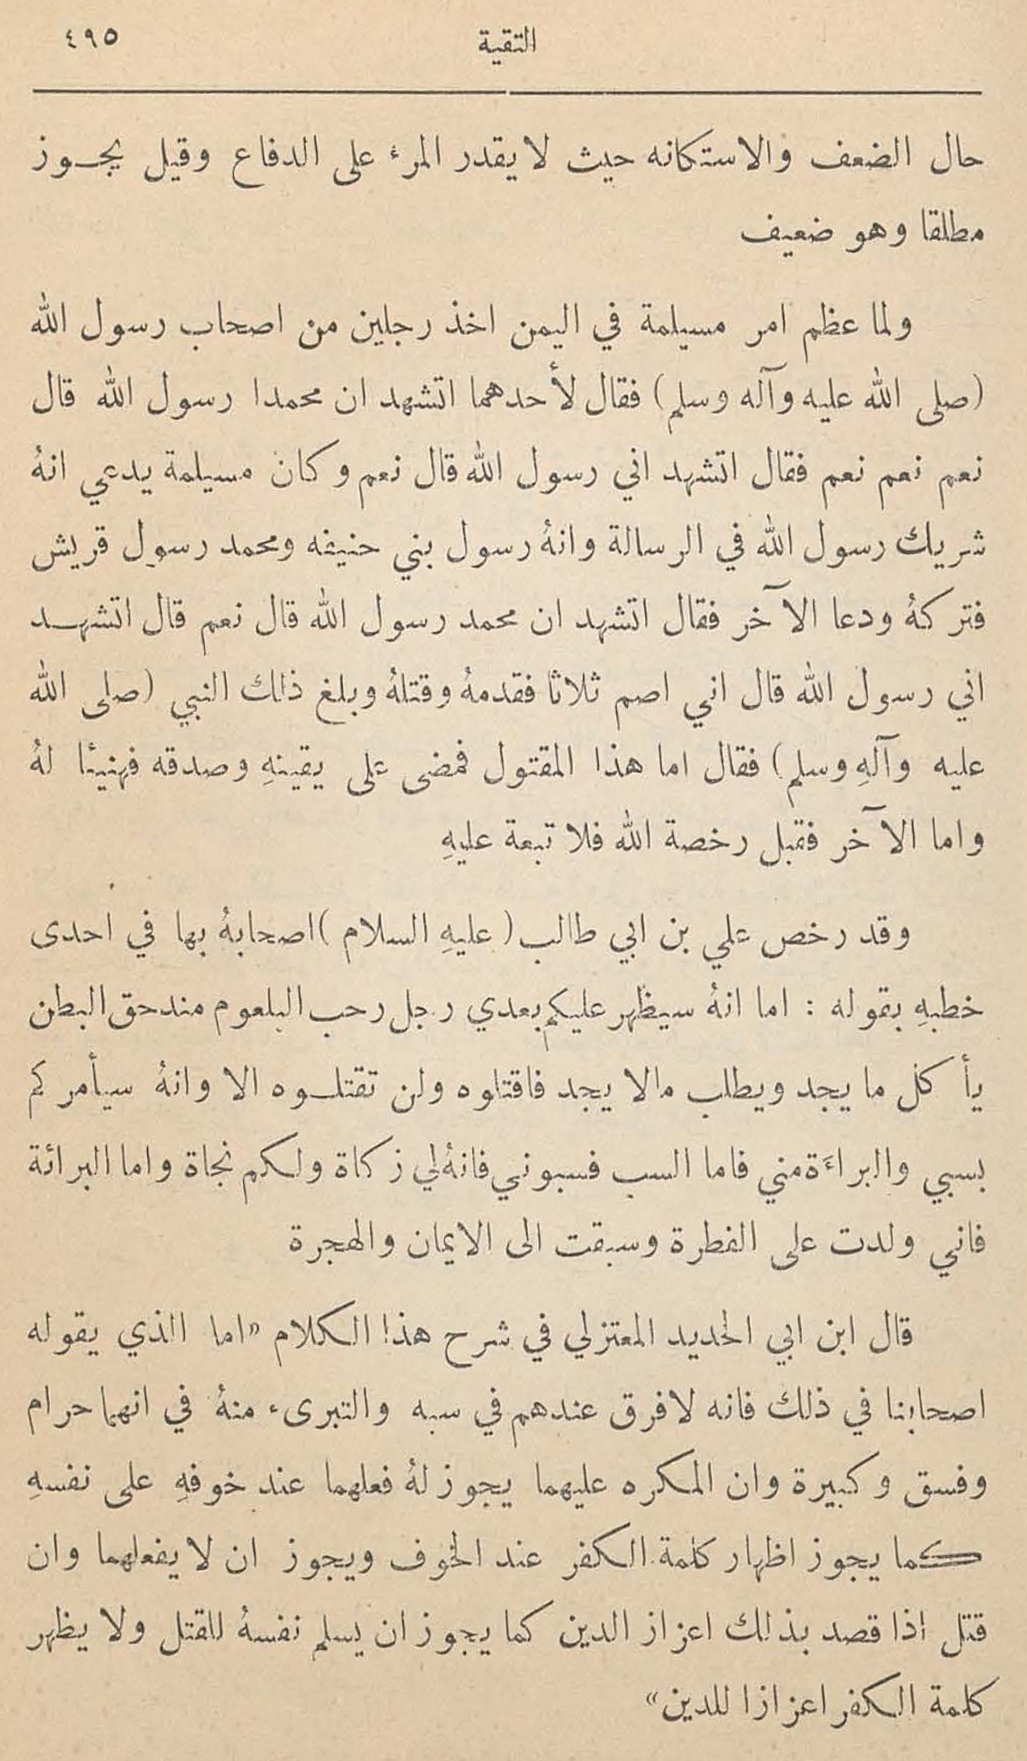 التقية ٤٩٥
حال الضعف والاستكانه حيث لا يقدر المرء على الدفاع وقيل يجــوز
مطلقا وهو ضعيف
ولما عظم امر مسيلمة في اليمن اخذ رجلين من اصحاب رسول الله
(صلى الله عليه وآله وسلم) فقال لأحدهما اتشهد ان محمدا رسول الله قال
نعم نعم نعم فقال اتشهد اني رسول الله قال نعم وكان مسيلمة يدعي انهُ
شريك رسول الله في الرسالة وانهُ رسول بني حنيفه ومحمد رسول قريش
فتركهُ ودعا الآخر فقال اتشهد ان محمد رسول الله قال نعم قال اتشهــد
اني رسول الله قال اني اصم ثلاثا فقدمهُ وقتلهُ وبلغ ذلك النبي (صلى الله
عليه وآلهِ وسلم) فقال اما هذا المقتول فمضى على يقينهِ وصدقه فهنيئا لهُ
واما الآخر فقبل رخصة الله فلا تبعة عليهِ
وقد رخص علي بن ابي طالب (عليهِ السلام) اصحابهُ بها في احدى
خطبهِ بقوله : اما انهُ سيظهر عليكم بعدي رجل رحب البلعوم مندحق البطن
يأكل ما يجد ويطلب مالا يجد فاقتلوه ولن تقتلــوه الا وانهُ سيأمركم
بسبي والبراءَة مني فاما السب فسبوني فانهُ لي زكاة ولكم نجاة واما البرائة
فاني ولدت على الفطرة وسبقت الى الايمان والهجرة
قال ابن ابي الحديد المعتزلي في شرح هذا الكلام «اما الذي يقوله
اصحابنا في ذلك فانه لا فرق عندهم في سبه والتبرىء منهُ في انهما حرام
وفسق وكبيرة وان المكره عليهما يجوز لهُ فعلهما عند خوفهِ على نفسهِ
كما يجوز اظهار كلمة الكفر عند الخوف ويجوز ان لا يفعلهما وان
قتل اذا قصد بذلك اعزاز الدين كما يجوز ان يسلم نفسهُ للقتل ولا يظهر
كلمة الكفر اعزازا للدين»